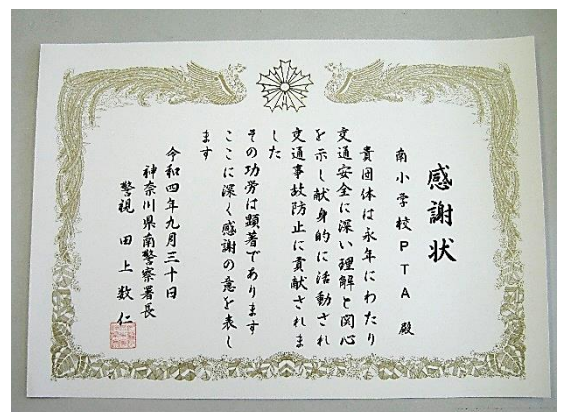 感謝状
南小学校PTA殿
貴団体は永年にわたり
交通安全に深い理解と関心
を示し献身的に活動され
交通事故防止に貢献されま
した
その功労は顕著であります
ここに深く感謝の意を表し
ます
令和四年九月三十日
神奈川県南警察署長
警視 田上数仁